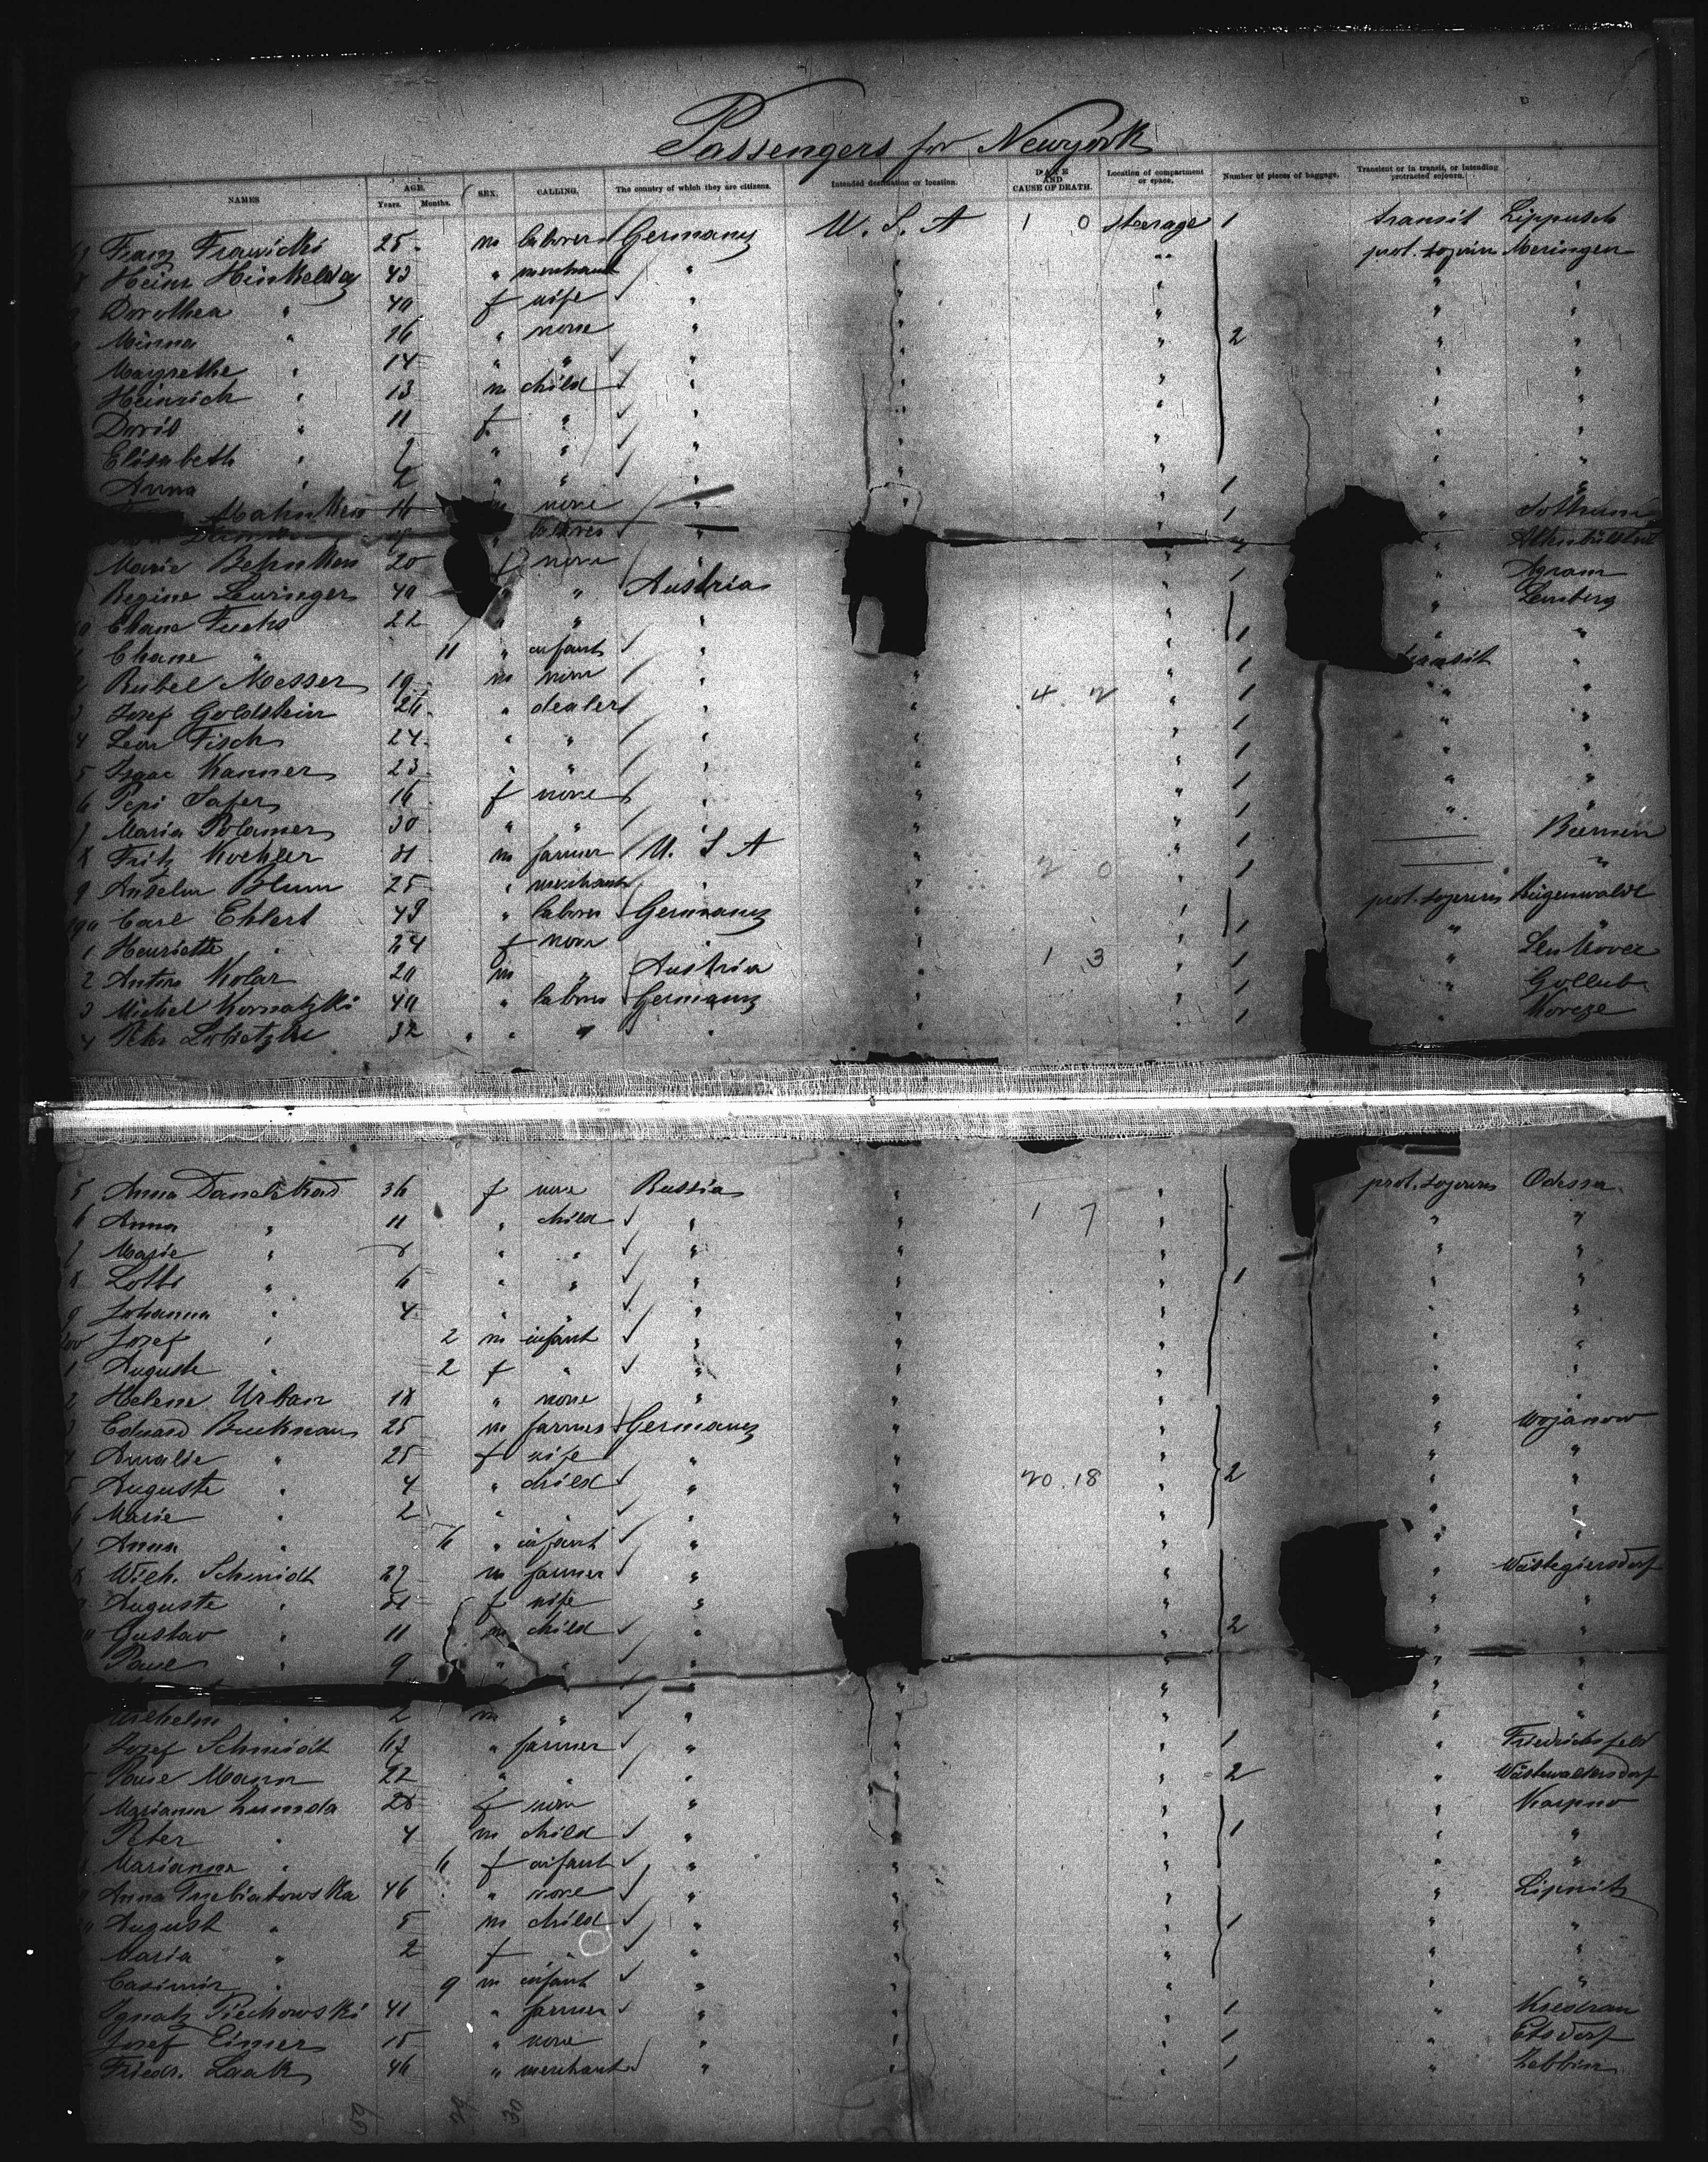 Passengers for Newyork
NAMES AGE. Years. Months. SEX. CALLING. The country of which they are citizens. Intended destination or location. DATE AND CAUSE OF DEATH. Location of compartment or space. Number of pieces of baggage. Transient or in transit, or intending protracted sojourn.
Franz 25 m laborer Germany U. S. A 1 0 steerage 1 transit Lippusch
Heinr Hinkeldey 43 " merchant " " " prot. sojourn Meringen
Dorothea " 40 f wife " " " " "
Minna " 16 " none " " " 2 " "
Magrethe " 14 " " " " " " "
Heinrich " 13 m child " " " " "
Doris " 11 f " " " " " "
Elisabeth " 7 " " " " " " "
Anna " 2 " " " " " " "
Mahnken none " " 1 "
laborer " 1 "
Marie Behnken 20 f none "
Regine Leuringer 40 " " Austria " 1 " Agram
Chane Fuchs 22 " " " " " Lemberg
Chane " 11 " infant " " 1 " "
Rubel Messer 19 m none " " " 1 transit "
Josef Goldstein 26 " dealer " " 4 2 " 1 " "
Leon Fisch 24 " " " " " 1 " "
Isaac Kanner 23 " " " " " 1 " "
Pepi Safer 16 f none " " " 1 " "
Maria Polamer 30 " " " " " 1 " "
Fritz Koehler 31 m farmer U. S A " " 1 Bremen
9 Anselm Blum 25 " merchant " " 2 0 " 1 "
Carl Ehlert 49 " laborer Germany " " prot. sojourn Rügenwalde
1 Henriette " 24 f none " " 1 " "
2 Anton Kolar 20 m " Austria " 1 3 " 1 "
3 Michel Kornatzki 40 " laborer Germany " " 1 " Gollub
4 Peter 32 " " " " " 1 "
5 Anna 36 f none Russia " " prot. sojourn Odessa
6 Anna " 11 " child " " 1 7 " " "
7 Marie " 8 " " " " " " "
8 " 6 " " " " " 1 " "
9 Johanna " 4 " " " " " " "
Josef " 2 m infant " " " " "
1 Auguste " 2 f " " " " " "
2 Helene Urban 18 " none " " " " "
3 Eduard 25 m farmer Germany " " " Wojanow
4 Amalie " 25 f wife " " " " "
5 Auguste " 4 " child " " 20 18 " 2 " "
6 Marie " 2 " " " " " " "
Anna " " infant " " " " "
Wilh. Schmidt 27 m farmer " " " Wüstegiersdorf
Auguste " 31 f wife " " " "
Gustav " 11 m child " " 2 " "
Paul " 9 " " " " " "
Wilhelm " 2 m " " " " " "
Josef Schmidt 67 " farmer " " " 1 " Friedrichsfeld
Paul Mann 22 " " " " " 2 " Wüstewaltersdorf
Marianna 28 f none " " " " Karpno
Peter " 4 m child " " " 1 " "
Marianna " 6 f infant " " " " "
Anna Trzebiatowska 46 " none " " " " Lipnitz
August " 5 m child " " " 1 " "
Maria " 2 f " " " " " "
Casimir " 9 m infant " " " " "
Ignatz Piechowski 41 " farmer " " " 1 "
Josef Eimer 15 " none " " " 1 " Etsdorf
Friedr. Laak 46 " merchant " " " 1 "
59 29 30